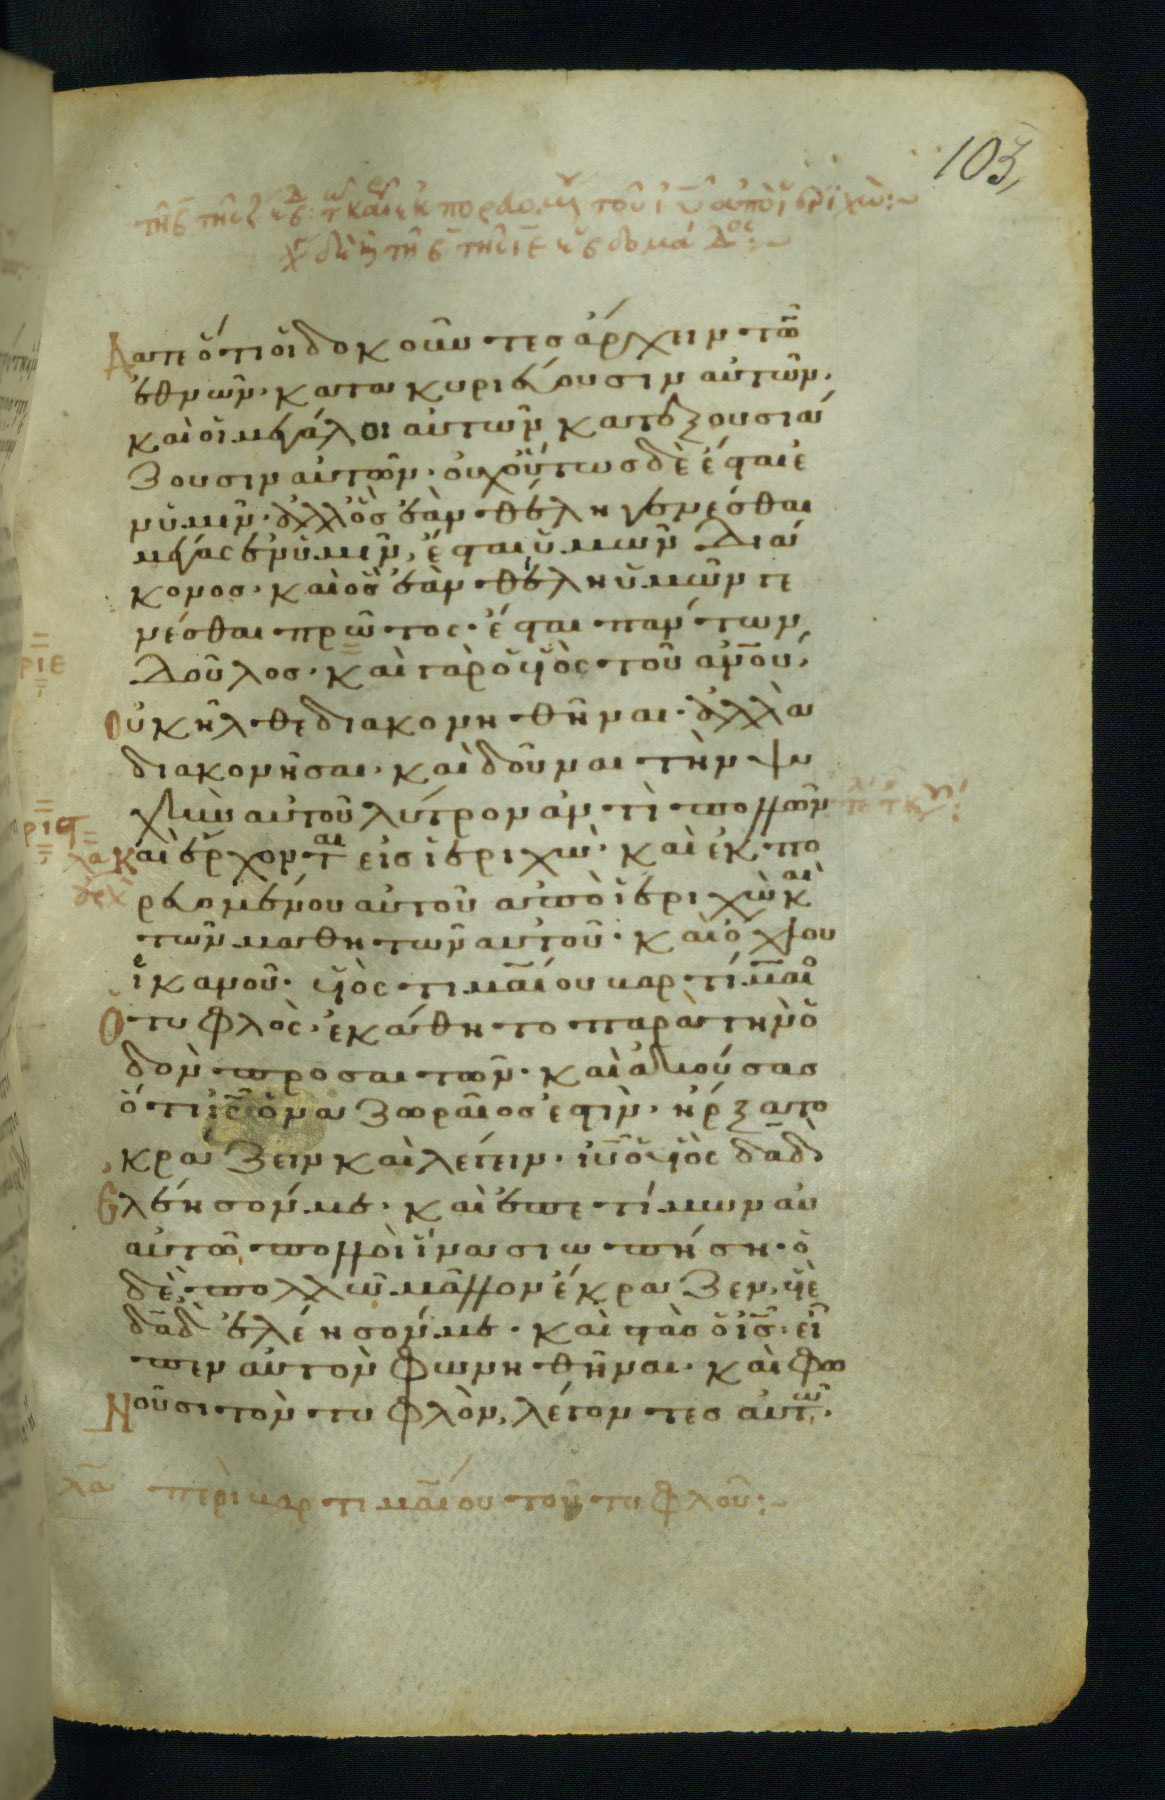 103
δατε ὅτι οἱ δοκοῦντες ἄρχειν τῶ
ἐθνῶν· κατακυριεύουσιν αὐτῶν·
καὶ οἱ μεγάλοι αὐτῶν κατεξουσιά
ζουσιν αὐτῶν· οὐχ οὕτως δὲ ἔσται ἐ
ν ὑμῖν· ἀλλ' ὃς ἐὰν θέλη γενέσθαι
μέγας ἐν ὑμῖν, ἔσται ὑμῶν διά
κονος· καὶ ὃς ἐὰν θέλη ὑμῶν γε
νέσθαι πρῶτος· ἔσται πάντων
δοῦλος· καὶ γὰρ ὁ υἱὸς τοῦ ἀνου·
ριε
Οὐκ ἦλθε διακονηθῆναι· ἀλλὰ
διακονῆσαι· καὶ δοῦναι τὴν ψυ
χὴν αὐτοῦ λύτρον ἀντὶ πολλῶν·
ρις
Καὶ ἔρχονται εἰς ἱεριχώ· καὶ ἐκπο
ρευομένου αὐτοῦ ἀπὸ ἱεριχὼ καὶ
τῶν μαθητῶν αὐτοῦ· καὶ ὄχλου
ἱκανοῦ· υἱὸς τιμαίου βαρτίμαι
Ὁ τυφλὸς· ἐκάθητο παρὰ τὴν ὁ
δὸν προσαιτῶν· καὶ ἀκούσας
ὅτι ις ὁ ναζωραῖος ἐστὶν· ἤρξατο
κράζειν καὶ λέγειν· ιυ ὁ υἱὸς δαδ·
Ἐλέησόν με· καὶ ἐπετίμων αυ
αὐτῶ πολλοὶ ἵνα σιωπήση· ὁ
δὲ πολλῶ μᾶλλον ἔκραζεν· υἱὲ
δαδ ἐλέησόν με· καὶ στὰς ὁ ις· εἶ
πεν αὐτὸν φωνηθῆναι· καὶ φω
Νοῦσι τὸν τυφλὸν, λέγοντες αὐτῶ·
λα περὶ βαρτιμαίου τοῦ τυφλοῦ: